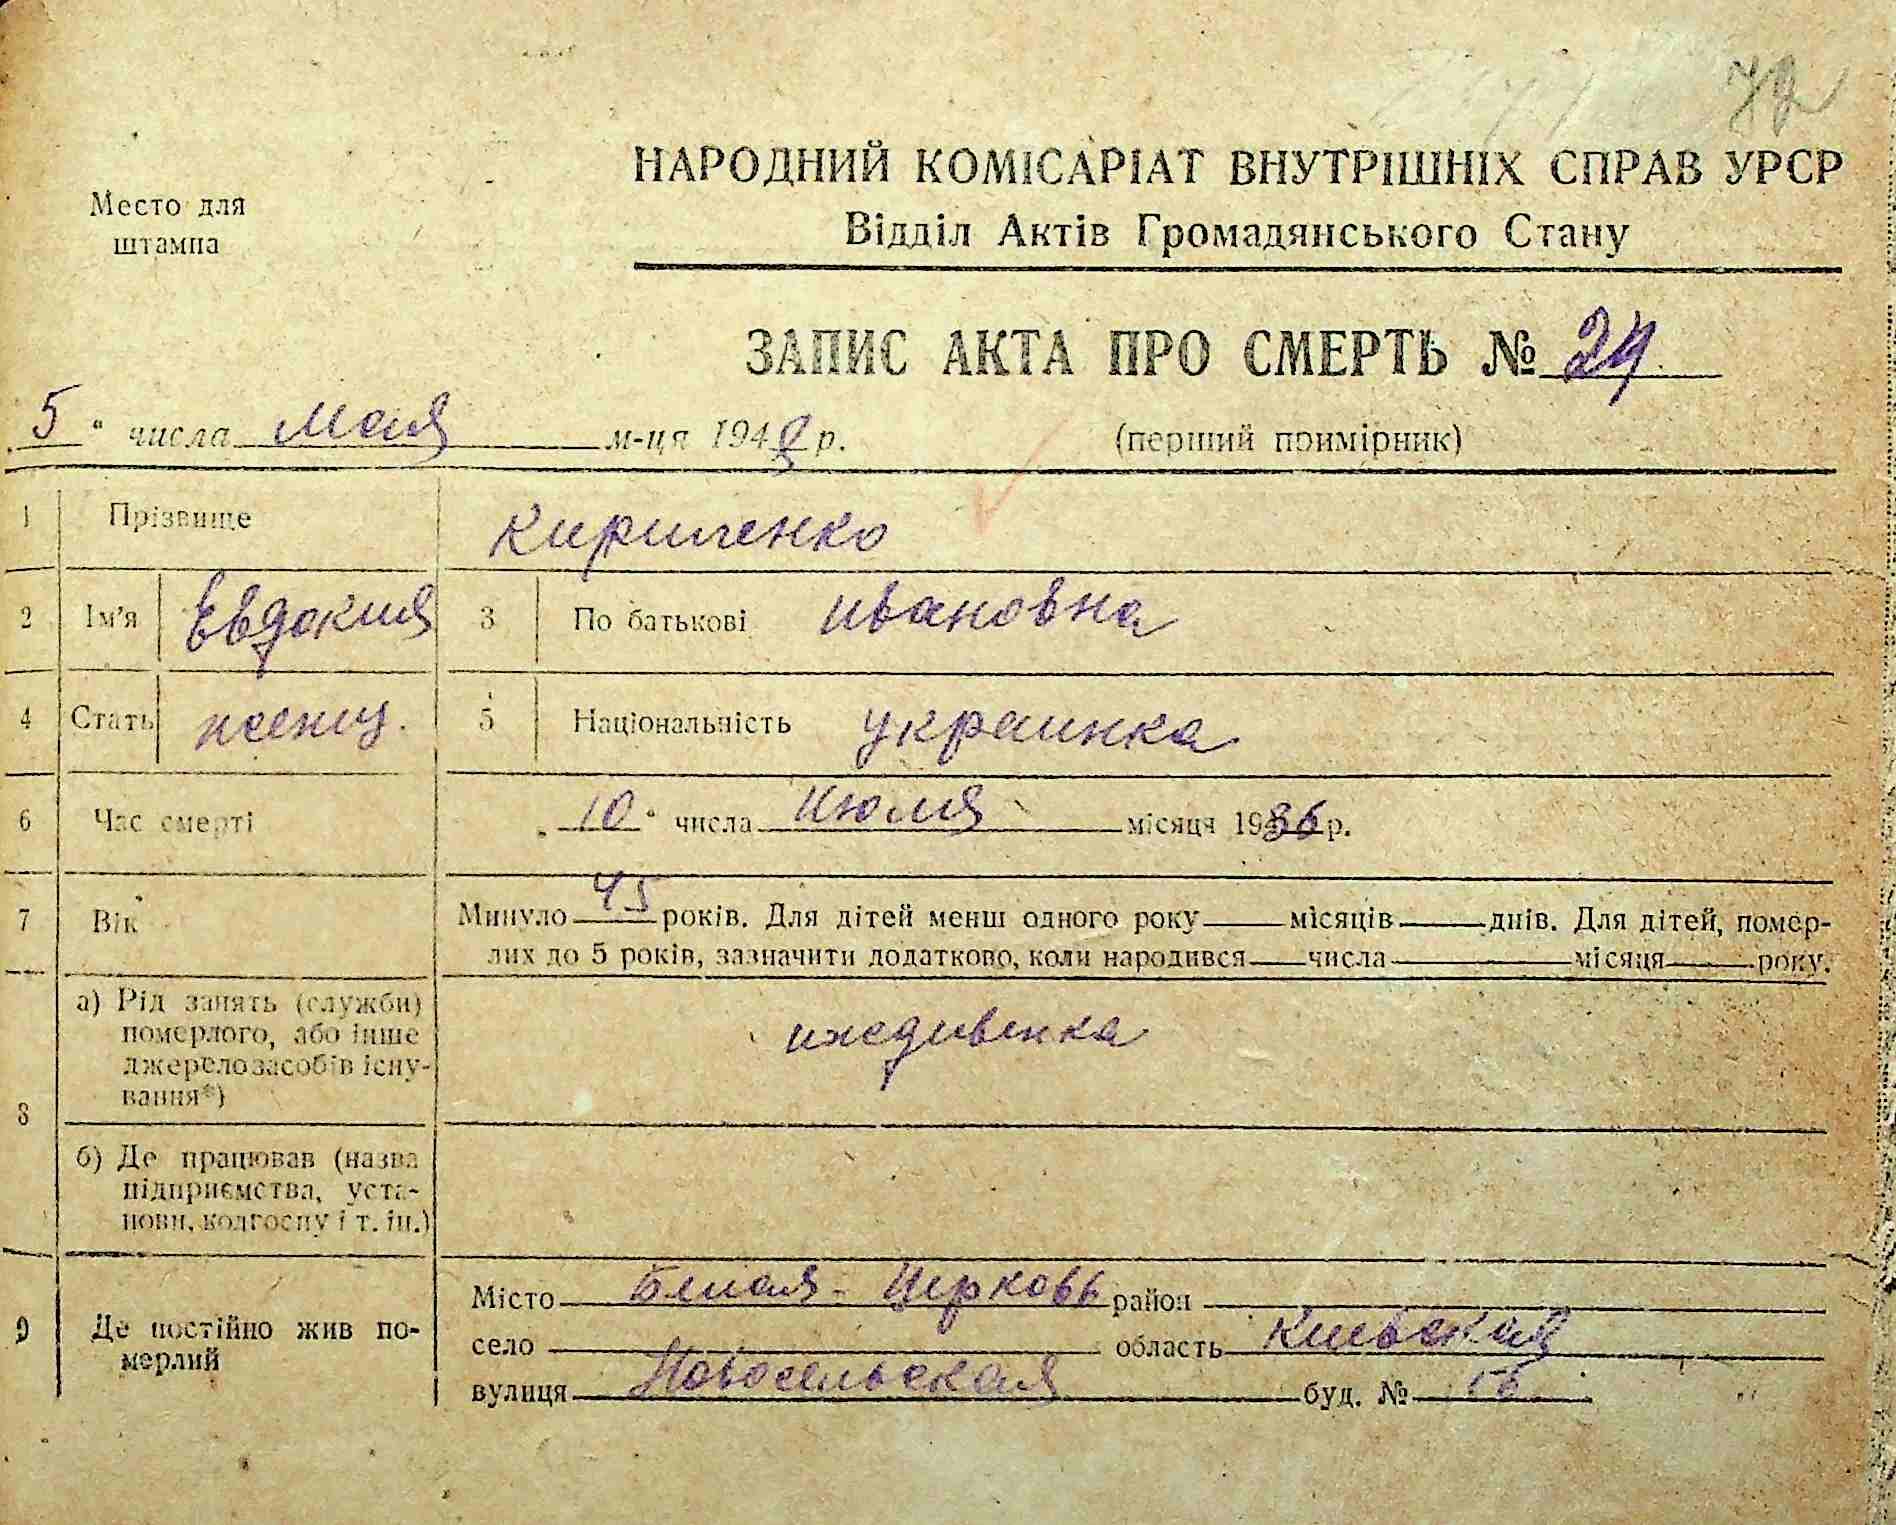 72
НАРОДНИЙ КОМІСАРІАТ ВНУТРІШНІХ СПРАВ УРСР
Место для
штампа
Відділ Актів Громадянського Стану
ЗАПИС АКТА ПРО СМЕРТЬ № 24
5 " числа мая м-ця 194 р.
(перший примірник)
1 Прізвище Кириленко
2 Ім'я Евдокия 3 По батькові ивановна
4 Стать женщ. 5 Національність украинка
6 Час смерті „10" числа Июля місяця 1936 р.
7 Вік Минуло 45 років. Для дітей менш одного року місяців днів. Для дітей, помер-
лих до 5 років, зазначити додатково, коли народився числа місяця року.
8 а) Рід занять (служби)
померлого, або інше
джерело засобів існу-
вання*)
иждивенка
б) Де працював (назва
підприємства, уста-
нови, колгоспу і т. ін.)
9 Де постійно жив по-
мерлий
Місто Белая-Церковь район
село область Киевская
вулиця Новосельская буд. №